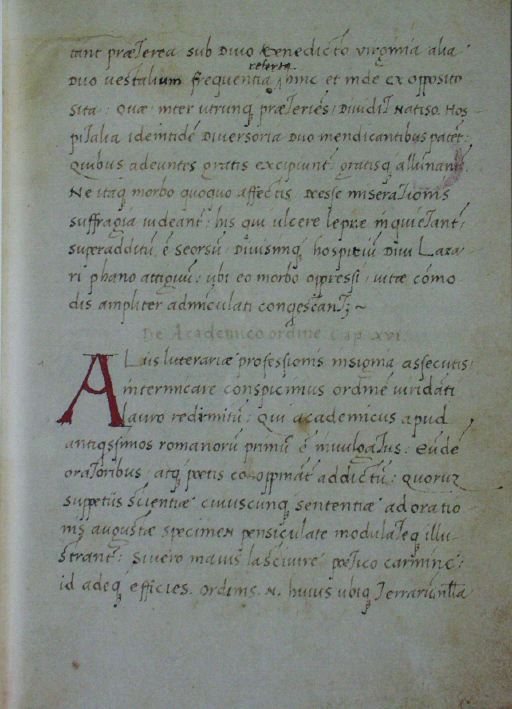 tant præterea sub Divo Benedicto virginia alia
referta
Duo vestalium frequentia hinc et inde ex opposito
sita: Quæ inter utrunq præteries, Dividit Natiso. Hos
pitalia idemtidē Diversoria Duo mendicantibus patēt:
Quibus adeuntes gratis excipiunt gratisq
Ne itaq morbo quoquo affectis Deesse miserationis
suffragia videant: his qui ulcere lepre inquietant
superadditū ē seorsū Divisumq hospitiū Divi Laza
ri phano attiguū: ubi eo morbo oppressi vitæ cōmo
dis ampliter adminiculati congescant
De Academico ordine Cap. xvi.
Alaris litterariæ professionis insignia assecutis
internicare conspicimus ordinē viridati
lauro redimitū: Qui academicus apud
antiqssimos romanorū primū ē invulgatus. Eudē
oratoribus atq poetis addictū: Quoruz
suppetiis scientiæ cuiuscunq sententiæ ad oratio
nis augustæ specimen pensiculate modulateq illu
strant: Si vero mavis lascivire poetico carmine:
id adeq efficies. Ordinis .N. huius ubiq Terrarū